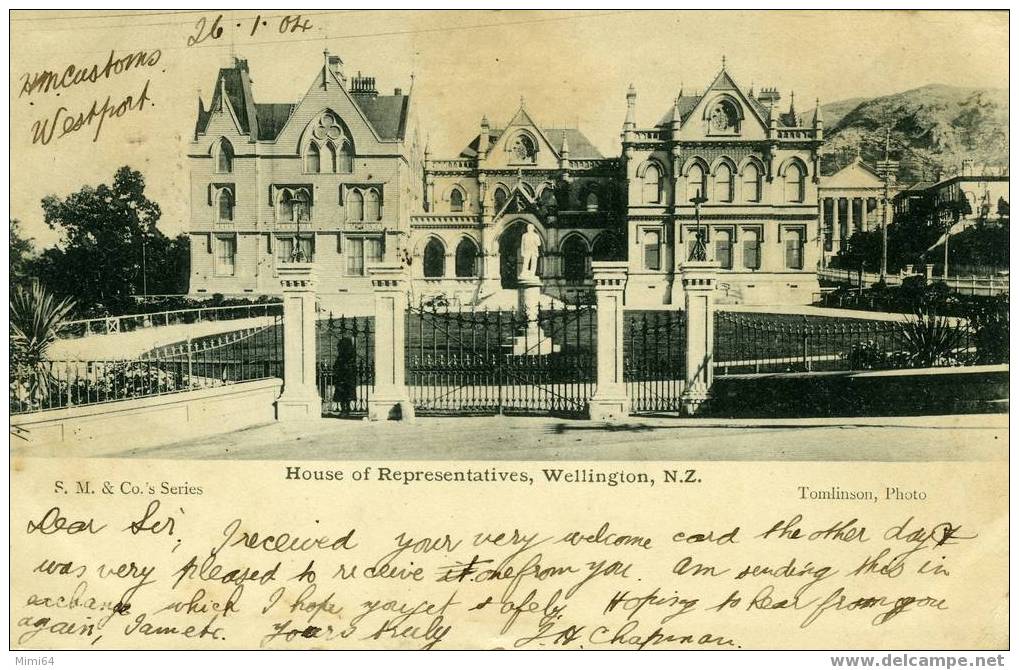 26 · 1 · 04
HM Customs
Westport.
House of Representatives, Wellington, N.Z.
S. M. & Co.'s Series
Tomlinson, Photo
Dear Sir, I received your very welcome card the other day &
was very pleased to receive one from you. Am sending this in
exchange which I hope you get safely. Hoping to hear from you
again, I am etc. Yours truly J. H. Chapman.
Mimi64
www.delcampe.net